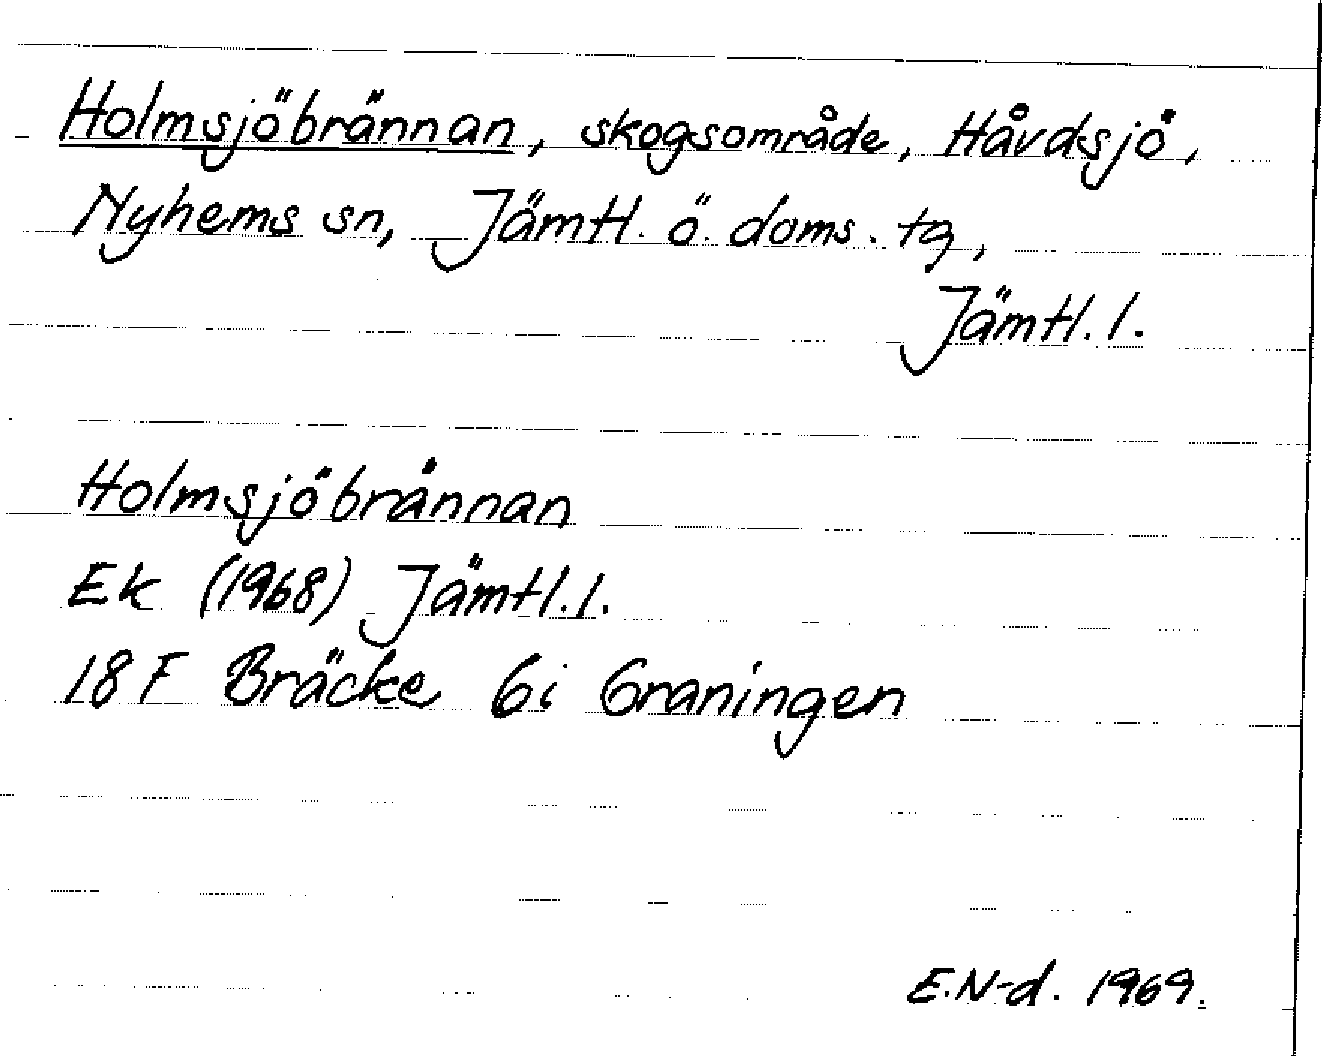 Holmsjöbrännan, skogsområde, Håvdsjö,
Nyhems sn, Jämtl. ö. doms. tg,
Jämtl. l.
Holmsjöbrännan
Ek (1968) Jämtl. l.
18 F Bräcke 6i Graningen
E.N-d. 1969.